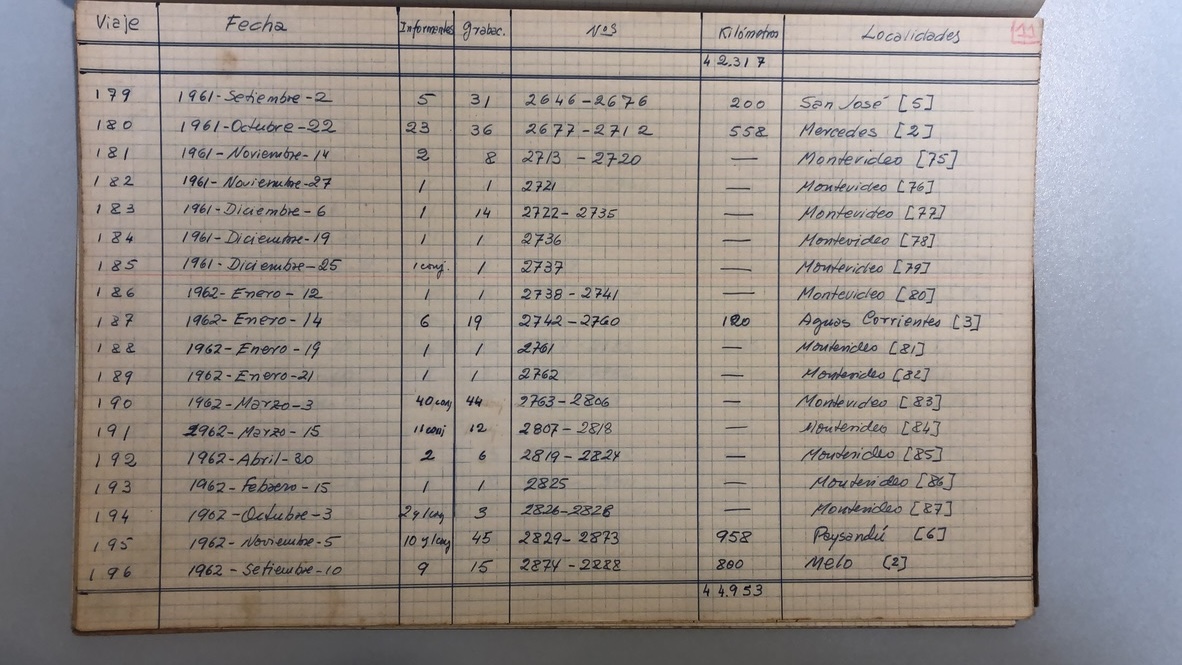 Viaje Fecha Informantes Grabac. Nos Kilómetros Localidades 11
42.317
179 1961-Setiembre-2 5 31 2646-2676 200 San José [5]
180 1961-Octubre-22 23 36 2677-2712 558 Mercedes [2]
181 1961-Noviembre-14 2 8 2713-2720 — Montevideo [75]
182 1961-Noviembre-27 1 1 2721 — Montevideo [76]
183 1961-Diciembre-6 1 14 2722-2735 — Montevideo [77]
184 1961-Diciembre-19 1 1 2736 — Montevideo [78]
185 1961-Diciembre-25 1 conj. 1 2737 — Montevideo [79]
186 1962-Enero-12 1 1 2738-2741 — Montevideo [80]
187 1962-Enero-14 6 19 2742-2760 120 Aguas Corrientes [3]
188 1962-Enero-19 1 1 2761 — Montevideo [81]
189 1962-Enero-21 1 1 2762 — Montevideo [82]
190 1962-Marzo-3 40 conj 44 2763-2806 — Montevideo [83]
191 1962-Marzo-15 11 conj 12 2807-2818 — Montevideo [84]
192 1962-Abril-30 2 6 2819-2824 — Montevideo [85]
193 1962-Febrero-15 1 1 2825 — Montevideo [86]
194 1962-Octubre-3 2 y 1 conj 3 2826-2828 — Montevideo [87]
195 1962-Noviembre-5 10 y 1 conj 45 2829-2873 958 Paysandú [6]
196 1962-Setiembre-10 9 15 2874-2888 800 Melo [2]
44.953